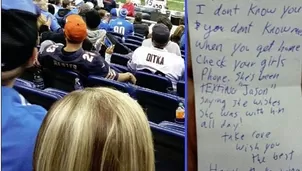 DITKA
I dont know you
& you dont know me
When you get home
Check your girls
Phone. She's been
TEXTING "Jason"
saying she wishes
She was with him
all day!
take care
wish you
the best